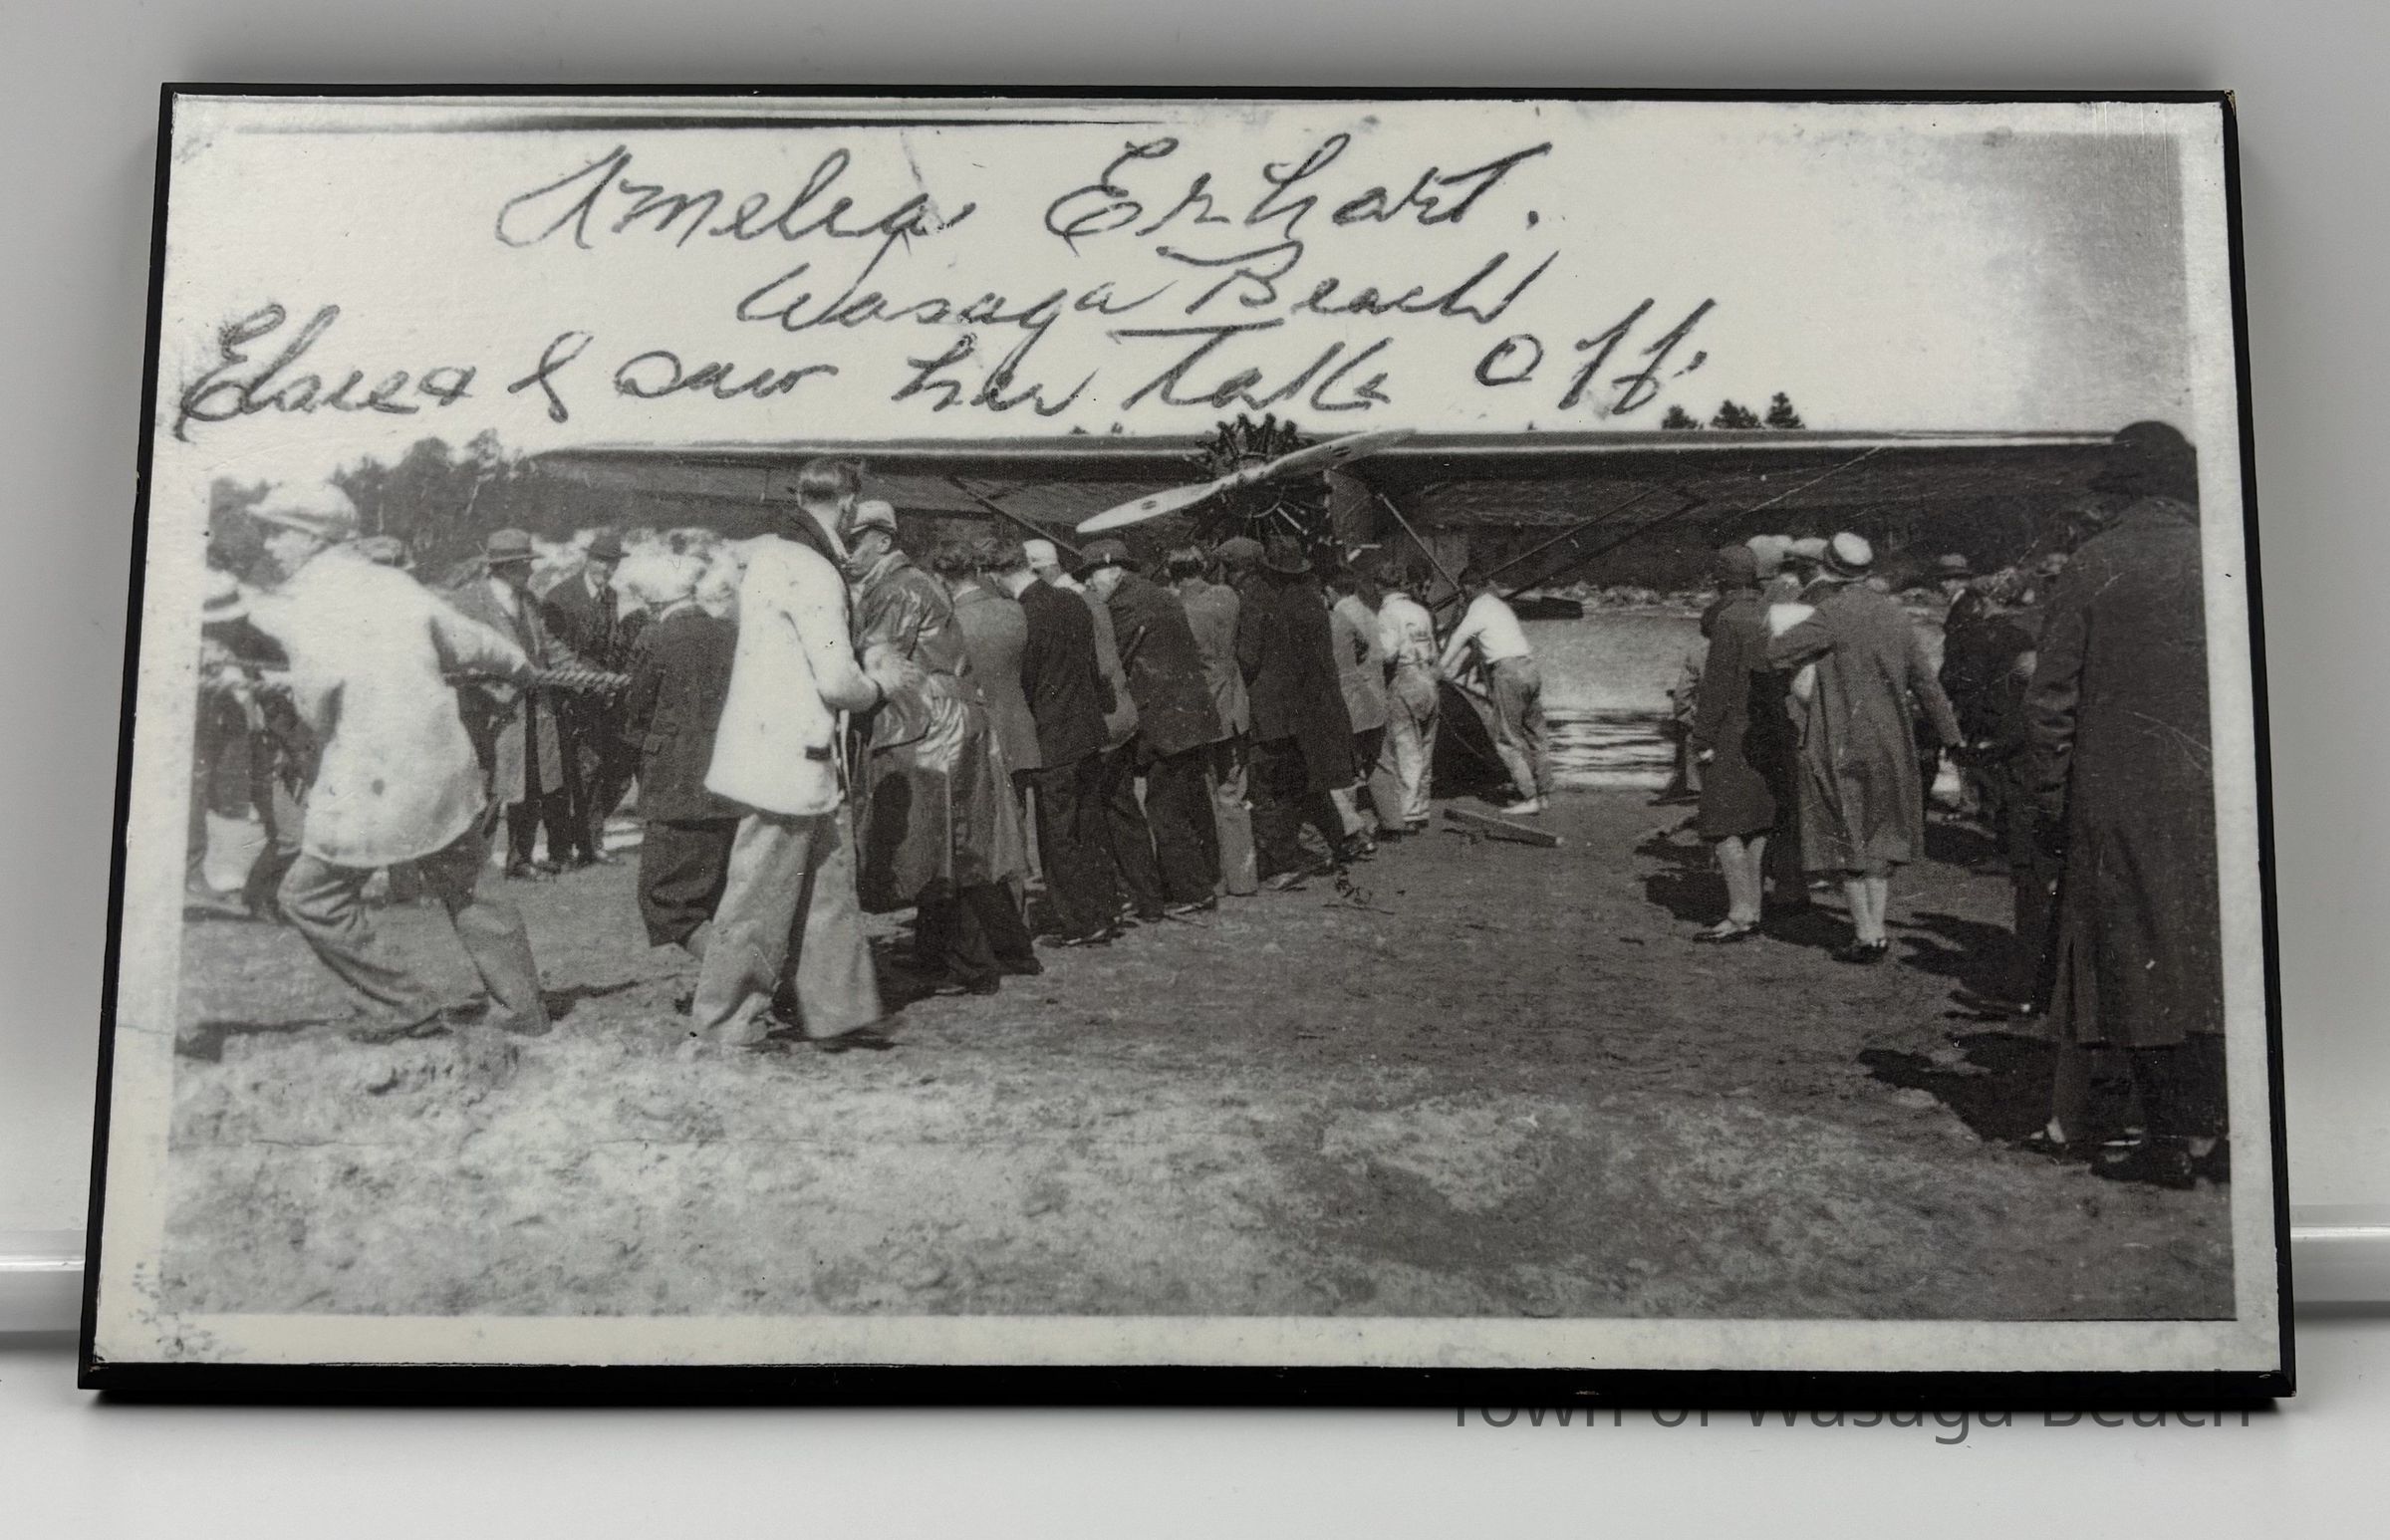 Amelia Erhart.
Wasaga Beach
Elsie & I saw her Take Off.
Town of Wasaga Beach